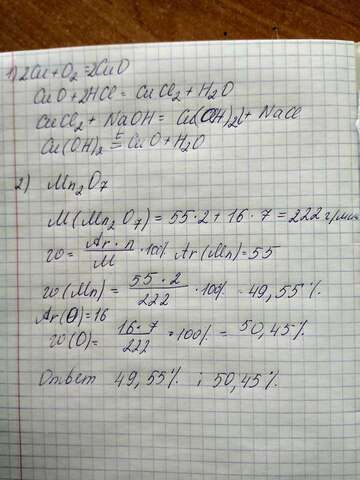 1) 2Cu + O₂ = 2CuO
CuO + 2HCl = CuCl₂ + H₂O
CuCl₂ + NaOH = Cu(OH)₂↓ + NaCl
Cu(OH)₂ =ᵗ CuO + H₂O
2) Mn₂O₇
M(Mn₂O₇) = 55·2 + 16·7 = 222 г/моль
w = Ar·n / M · 100% Ar(Mn) = 55
w(Mn) = 55·2 / 222 · 100% = 49,55%.
Ar(O) = 16
w(O) = 16·7 / 222 · 100% = 50,45%.
Ответ 49,55%. ; 50,45%.